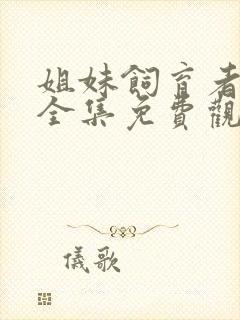 姐妹飼育者
全集免費觀
儀歌